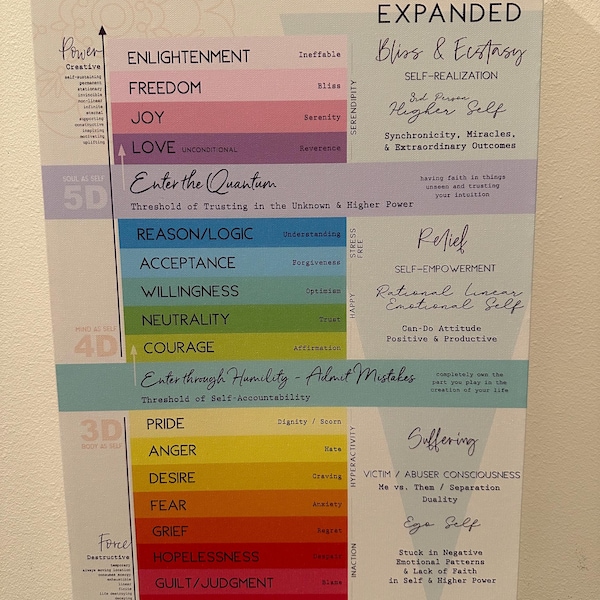 EXPANDED
Power
Creative
self-sustaining
permanent
stationary
invincible
non-linear
infinite
eternal
supporting
constructive
inspiring
motivating
uplifting
ENLIGHTENMENT Ineffable
FREEDOM Bliss
JOY Serenity
LOVE UNCONDITIONAL Reverence
SERENDIPITY
Bliss & Ecstasy
SELF-REALIZATION
3rd Person
Higher Self
Synchronicity, Miracles,
& Extraordinary Outcomes
SOUL AS SELF
5D
Enter the Quantum
Threshold of Trusting in the Unknown & Higher Power
having faith in things
unseen and trusting
your intuition
REASON/LOGIC Understanding
ACCEPTANCE Forgiveness
WILLINGNESS Optimism
NEUTRALITY Trust
COURAGE Affirmation
STRESS
FREE
HAPPY
Relief
SELF-EMPOWERMENT
Rational Linear
Emotional Self
Can-Do Attitude
Positive & Productive
MIND AS SELF
4D
Enter through Humility - Admit Mistakes
Threshold of Self-Accountability
completely own the
part you play in the
creation of your life
3D
BODY AS SELF
PRIDE Dignity / Scorn
ANGER Hate
DESIRE Craving
FEAR Anxiety
GRIEF Regret
HOPELESSNESS Despair
GUILT/JUDGMENT Blame
HYPERACTIVITY
INACTION
Suffering
VICTIM / ABUSER CONSCIOUSNESS
Me vs. Them / Separation
Duality
Ego Self
Stuck in Negative
Emotional Patterns
& Lack of Faith
in Self & Higher Power
Force
Destructive
temporary
always moving location
consumes energy
exhaustible
linear
finite
life destroying